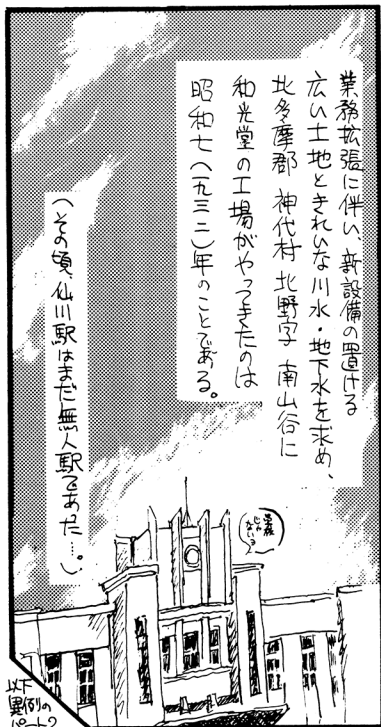 業務拡張に伴い、新設備の置ける
広い土地ときれいな川水・地下水を求め、
北多摩郡 神代村 北野字 南山谷に
和光堂の工場がやってきたのは
昭和七(一九三二)年のことである。
(その頃、仙川駅はまだ無人駅であった…。)
学校
じゃ
ない?
以下
異例の
パート2